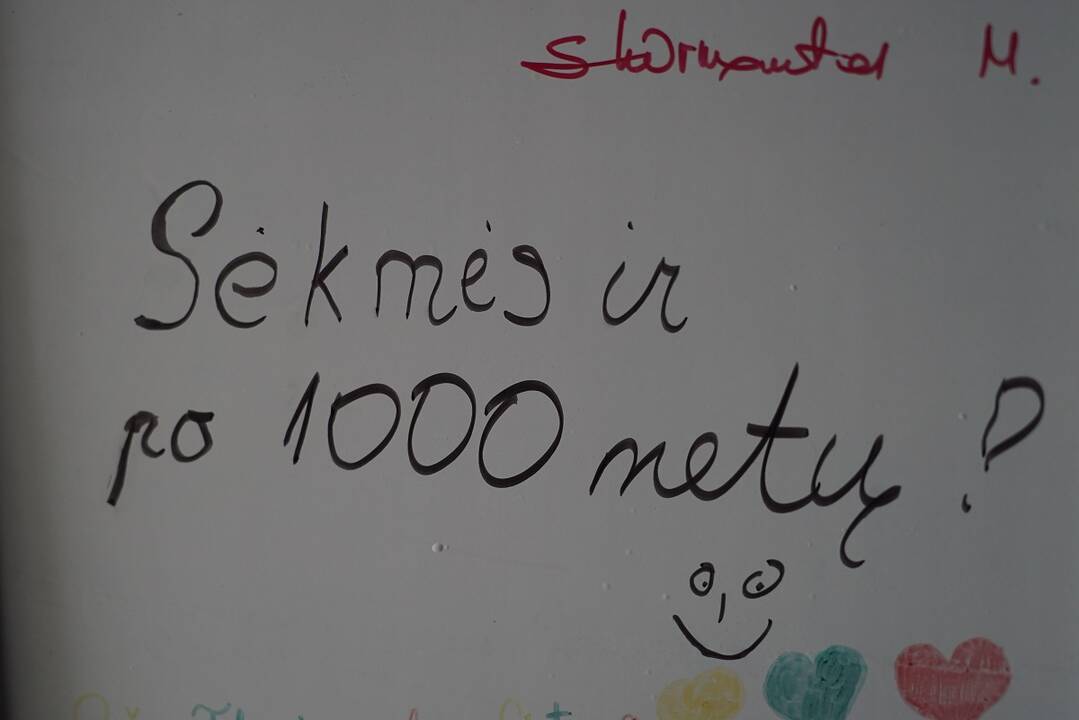 M.
Sėkmės ir
po 1000 metų !